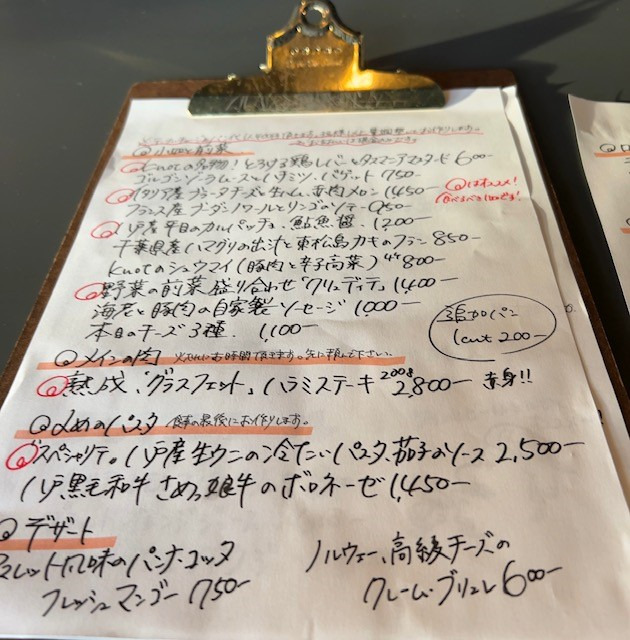 小皿と前菜
knotの名物!とろける鶏レバーとタスマニアマスタード 600-
ゴルゴンゾーラムースとハチミツ、バゲット 750-
イタリア産ブラータチーズと生ハム、赤肉メロン 1,450-
はオススメ!
食べるべき1皿です!
フランス産ブーダンノワールとリンゴのソテー 950-
八戸産平目のカルパッチョ、鮎魚醤 1,200-
千葉県産ハマグリの出汁と東松島カキのフラン 850-
knotのシュウマイ(豚肉と辛子高菜) 4ケ 800-
野菜の前菜盛り合わせ"クリュディテ" 1,400-
海老と豚肉の自家製ソーセージ 1000-
本日のチーズ3種. 1,100-
追加パン
1cut 200-
メインの肉 火入れにお時間頂きます。先に頼んで下さい。
熟成、グラスフェッド、ハラミステーキ 200g 2,800- 赤身!!
〆めのパスタ 食事の最後にお作りします。
スペシャリテ。八戸産生ウニの冷たいパスタ、茄子のソース 2,500-
八戸黒毛和牛 さめっ娘牛のボロネーゼ 1,450-
デザート
風味のパンナ・コッタ
フレッシュマンゴー 750-
ノルウェー、高級チーズの
クレーム・ブリュレ 600-